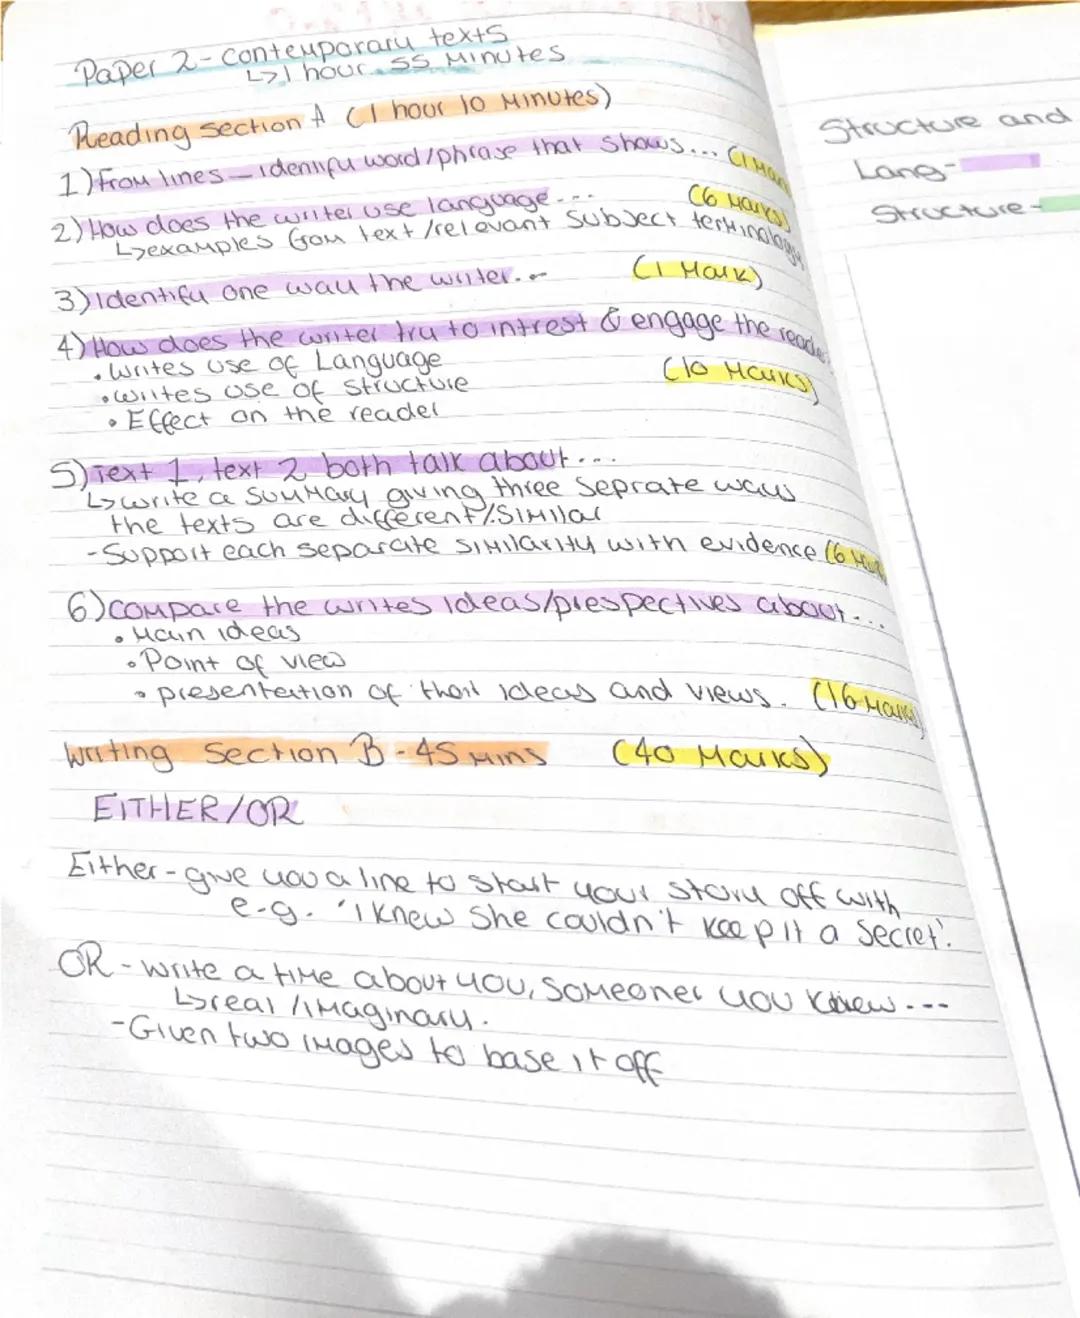 Paper 2 - contemporary texts
↳1 hour 55 minutes
Reading section A (1 hour 10 minutes)
1) From lines — identify word/phrase that shows... (1 Mark
2) How does the writer use language... (6 Marks)
↳examples from text/relevant subject terminology
3) Identify one way the writer... (1 Mark)
4) How does the writer try to intrest & engage the reader
• writes use of Language (10 Marks)
• writes use of structure
• Effect on the reader
5) Text 1, text 2 both talk about....
↳write a summary giving three seprate ways
the texts are different/similar
- Support each separate similarity with evidence (6 Mark
6) compare the writes ideas/prespectives about...
• Main ideas
• Point of view
• presentation of their ideas and views. (16 Marks)
Writing Section B - 45 mins (40 Marks)
EITHER/OR
Either - give you a line to start your story off with
e.g. 'I knew she couldn't keep it a secret'.
OR - write a time about you, someone you knew ---
↳real /imaginary.
- Given two images to base it off
Structure and
Lang-
Structure-